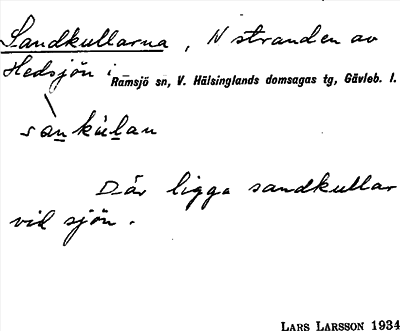 Sandkullarna, N stranden av
Hedsjön i Ramsjö sn, V. Hälsinglands domsagas tg, Gävleb. l.
sankúlan
Där ligga sandkullar
vid sjön.
LARS LARSSON 1934